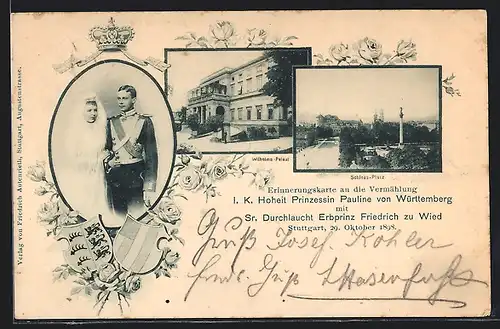 Verlag von Friedrich Autenrieth, Stuttgart, Augustenstrasse.
Wilhelms-Palast
Schloss-Platz
Erinnerungskarte an die Vermählung
I. K. Hoheit Prinzessin Pauline von Württemberg
mit
Sr. Durchlaucht Erbprinz Friedrich zu Wied
Stuttgart, 29. Oktober 1898.
Gruß Josef Kohler
Gruß